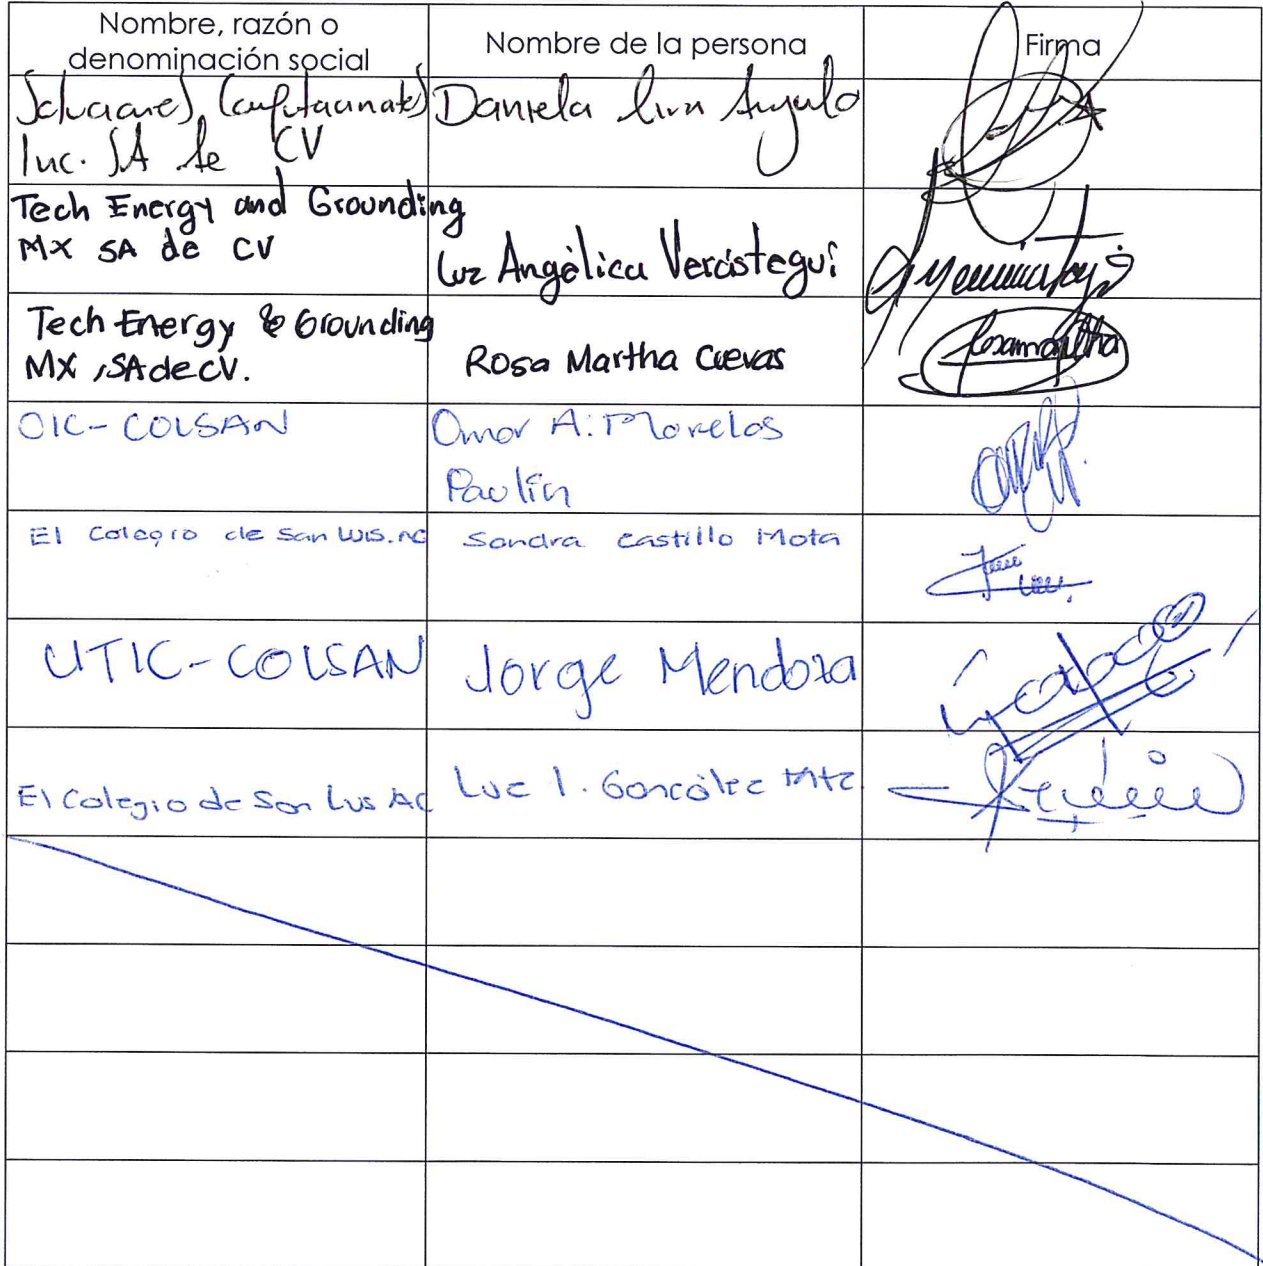 Nombre, razón o
denominación social
Nombre de la persona
Firma
Soluciones Computacionales
Inc. SA de CV
Daniela Angulo
Tech Energy and Grounding
MX SA de CV
Luz Angélica Verástegui
Tech Energy & Grounding
MX , SA de CV.
Rosa Martha Cuevas
Rosamartha
OIC-COLSAN
Omar A. Morelos
Paulín
El Colegio de San Luis. AC
Sandra Castillo Mota
UTIC-COLSAN
Jorge Mendoza
El Colegio de San Luis AC
Luz I. González Mtz.